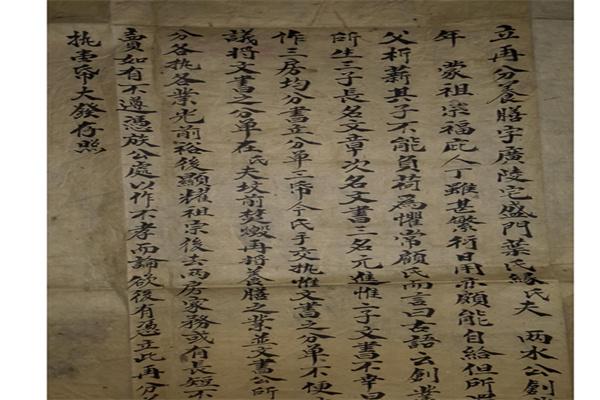 立再分養膳字廣陵宅盛門葉氏緣氏夫 兩水公創
年 蒙祖宗福庇人丁雖甚繁衍日用亦頗能自給但所
父析薪其子不能負荷為懼常顧氏而言曰古語云創業
所生三子長名文章次名文書三名元進惟二子文書不幸
作三房均分書立分單三帋令氏手交執惟文書之分單不便
議將文書之分單在氏夫坟前焚燬再將養膳之業並文書公所
分各執各業光前裕後顯耀祖宗後去兩房家務或有長短不
賣如有不遵憑族公處以作不孝而論欲後有憑立此再分
執壹帋大發存照